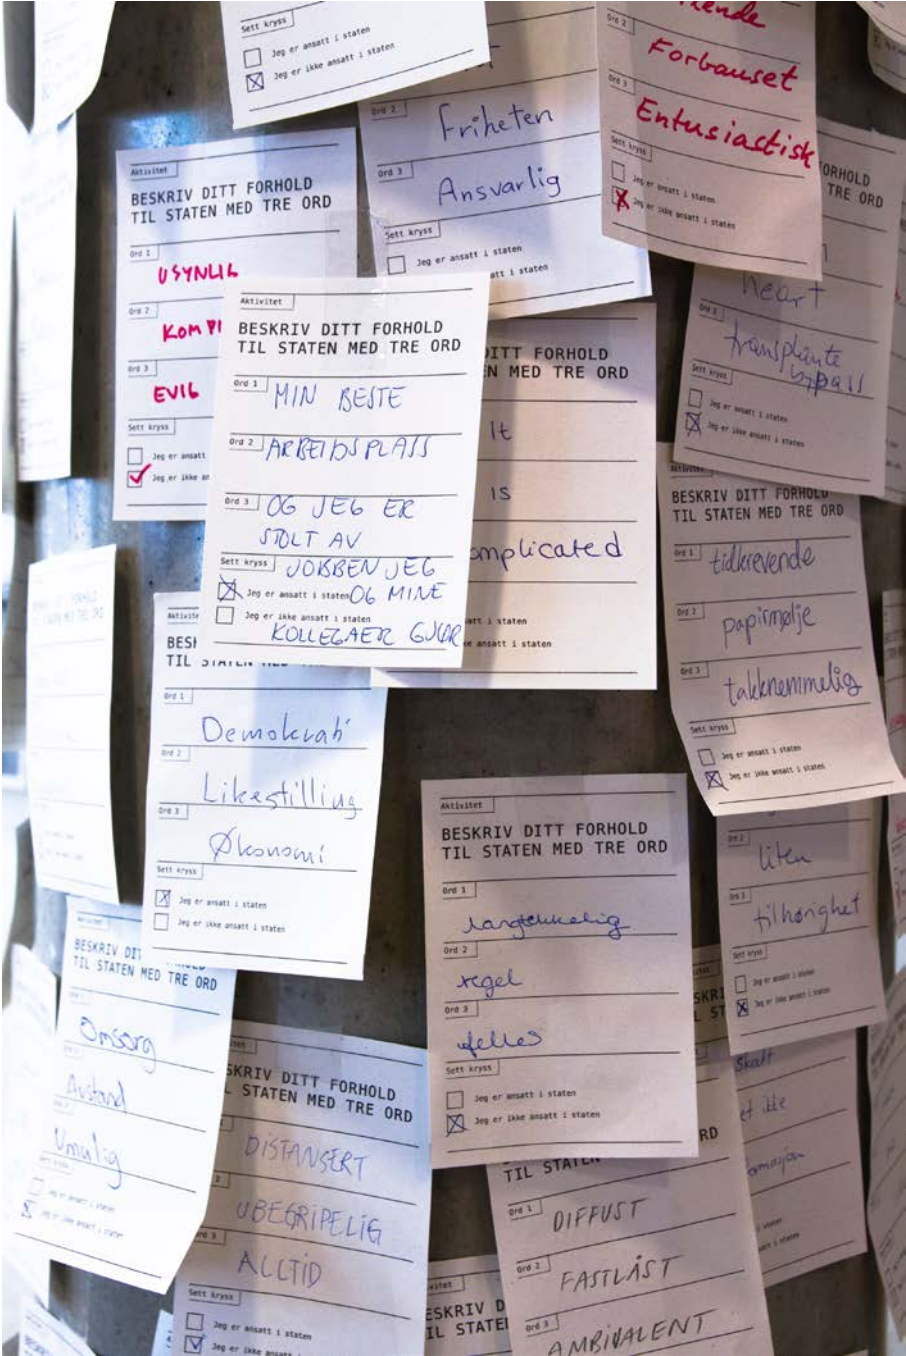 Sett kryss
Jeg er ansatt i staten
Jeg er ikke ansatt i staten
Ord 2
Friheten
Ord 3
Ansvarlig
Sett kryss
Jeg er ansatt i staten
att i staten
Ord 2
Forbauset
Ord 3
Entusiastisk
Sett kryss
Jeg er ansatt i staten
Jeg er ikke ansatt i staten
ORHOLD
TRE ORD
heart
Ord 3
transplante
bypass
Sett kryss
Jeg er ansatt i staten
Jeg er ikke ansatt i staten
Aktivitet
BESKRIV DITT FORHOLD
TIL STATEN MED TRE ORD
Ord 1
USYNLIG
Ord 2
KOMPL
Ord 3
EVIG
Sett kryss
Jeg er ansatt
Jeg er ikke an
Aktivitet
BESKRIV DITT FORHOLD
TIL STATEN MED TRE ORD
Ord 1
MIN BESTE
Ord 2
ARBEIDSPLASS
Ord 3
OG JEG ER
STOLT AV
Sett kryss
JOBBEN JEG
Jeg er ansatt i staten
OG MINE
Jeg er ikke ansatt i staten
KOLLEGAER GJØR
DITT FORHOLD
EN MED TRE ORD
It
is
omplicated
satt i staten
ke ansatt i staten
BESKRIV DITT FORHOLD
TIL STATEN MED TRE ORD
Ord 1
tidkrevende
Ord 2
papirmølje
Ord 3
takknemmelig
Sett kryss
Jeg er ansatt i staten
Jeg er ikke ansatt i staten
Aktivite
BESK
TIL STATEN MED TRE ORD
Ord 1
Demokrati
Ord 2
Likestilling
Ord 3
Økonomi
Sett kryss
Jeg er ansatt i staten
Jeg er ikke ansatt i staten
Aktivitet
BESKRIV DITT FORHOLD
TIL STATEN MED TRE ORD
Ord 1
langtekkelig
Ord 2
regel
Ord 3
felles
Sett kryss
Jeg er ansatt i staten
Jeg er ikke ansatt i staten
Ord 2
liten
Ord 3
tilhørighet
Sett kryss
Jeg er ansatt i staten
Jeg er ikke ansatt i staten
Aktivitet
BESKRIV DIT
TIL STATEN MED TRE ORD
Omsorg
Avstand
Umulig
Jeg er ansatt i staten
Jeg er ikke ansatt i staten
SKRIV DITT FORHOLD
L STATEN MED TRE ORD
DISTANSERT
UBEGRIPELIG
ALLTID
Sett kryss
Jeg er ansatt i staten
Jeg er ikke ansatt
Skatt
et ikke
ormasjon
RD
TIL STATEN
Ord 1
DIFFUST
Ord 2
FASTLÅST
Ord 3
AMBIVALENT
ESKRIV D
IL STATEN